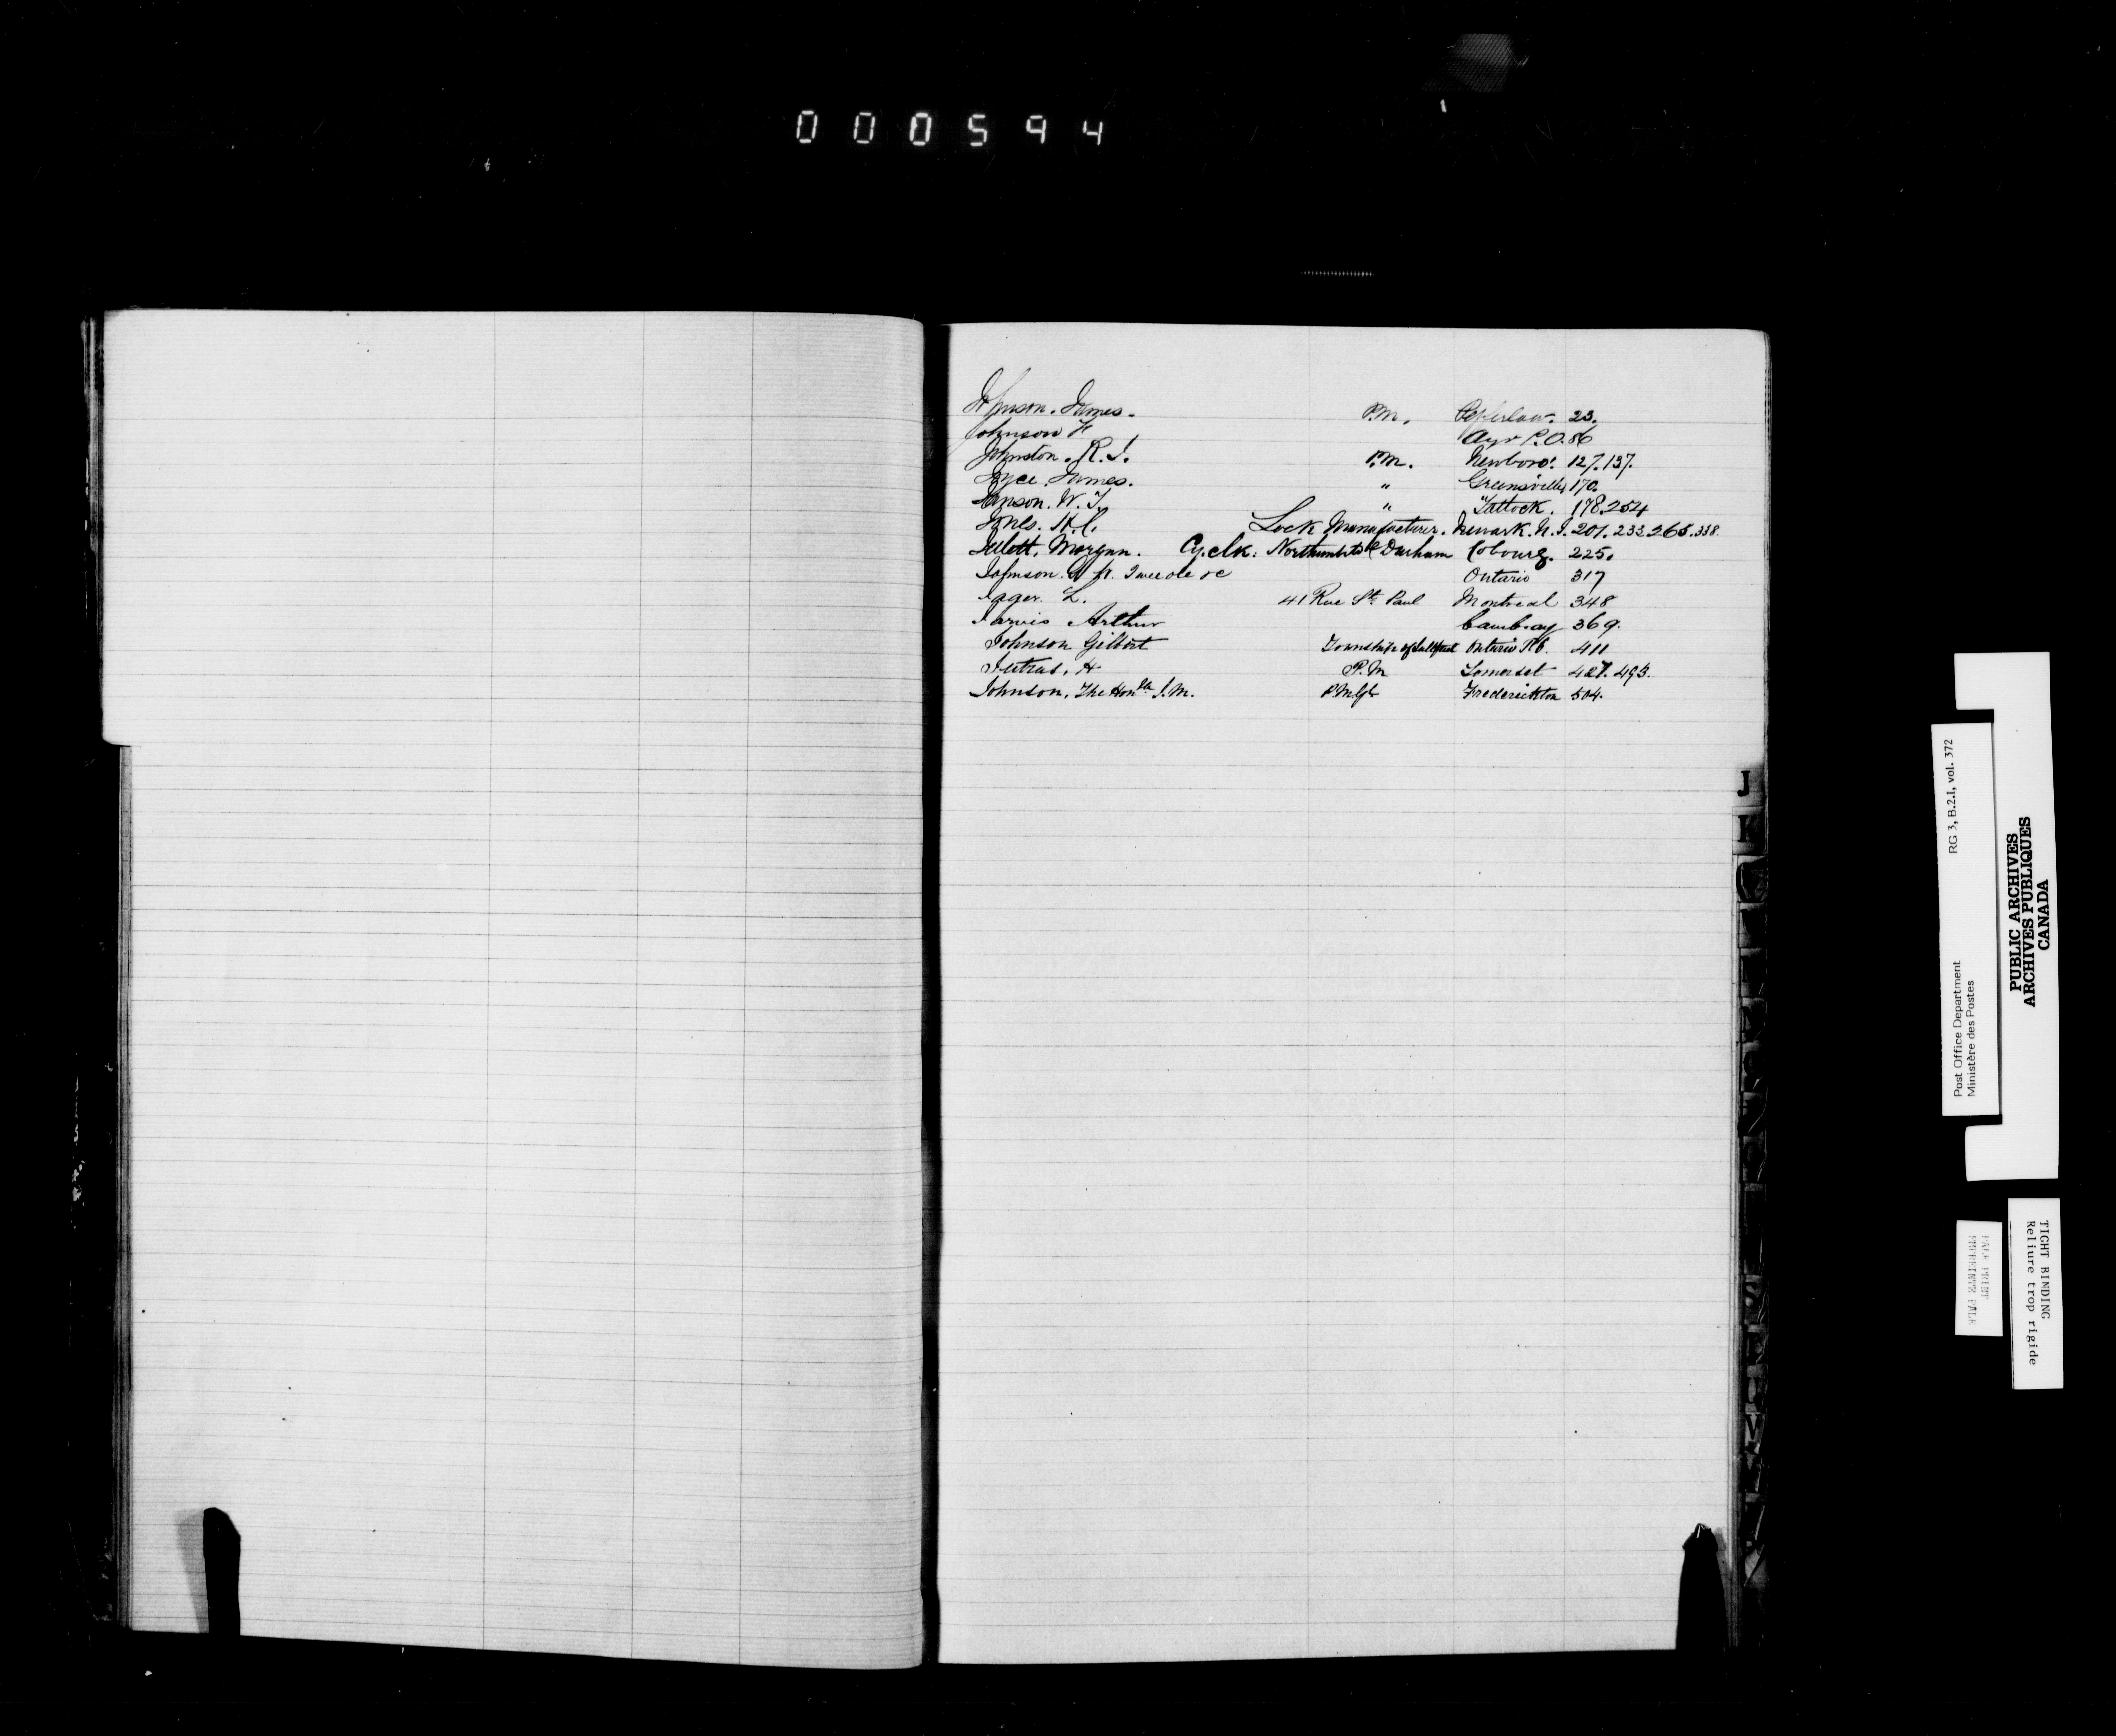 000594
Johnson. James. P.M. Pefferlaw. 23.
Johnson Ayr P.O. 86
Johnston. R. J. P.M. Newboro'. 127. 137.
Joyce. James. " Greensville 170.
Janson. W. J. " Tatlock. 178. 254
Jones. H. C. Lock Manufacturer. Newark. N. J. 201. 233 265. 338.
Jellett. Morgan. Cy. clk: Northumbld & Durham Cobourg. 225.
Johnson. Ontario 317
Jager. L. 41 Rue St. Paul Montreal 348
Jarvis Arthur Cambray 369.
Johnson Gilbert Township of Ontario 411
Jutras, H P.M Somerset 427. 493.
Johnson, The Honble J. M. Fredericton 504.
J
K
V
RG 3, B.2.1, vol. 372
Post Office Department
Ministère des Postes
PUBLIC ARCHIVES
ARCHIVES PUBLIQUES
CANADA
TIGHT BINDING
Reliure trop rigide
PALE PRINT